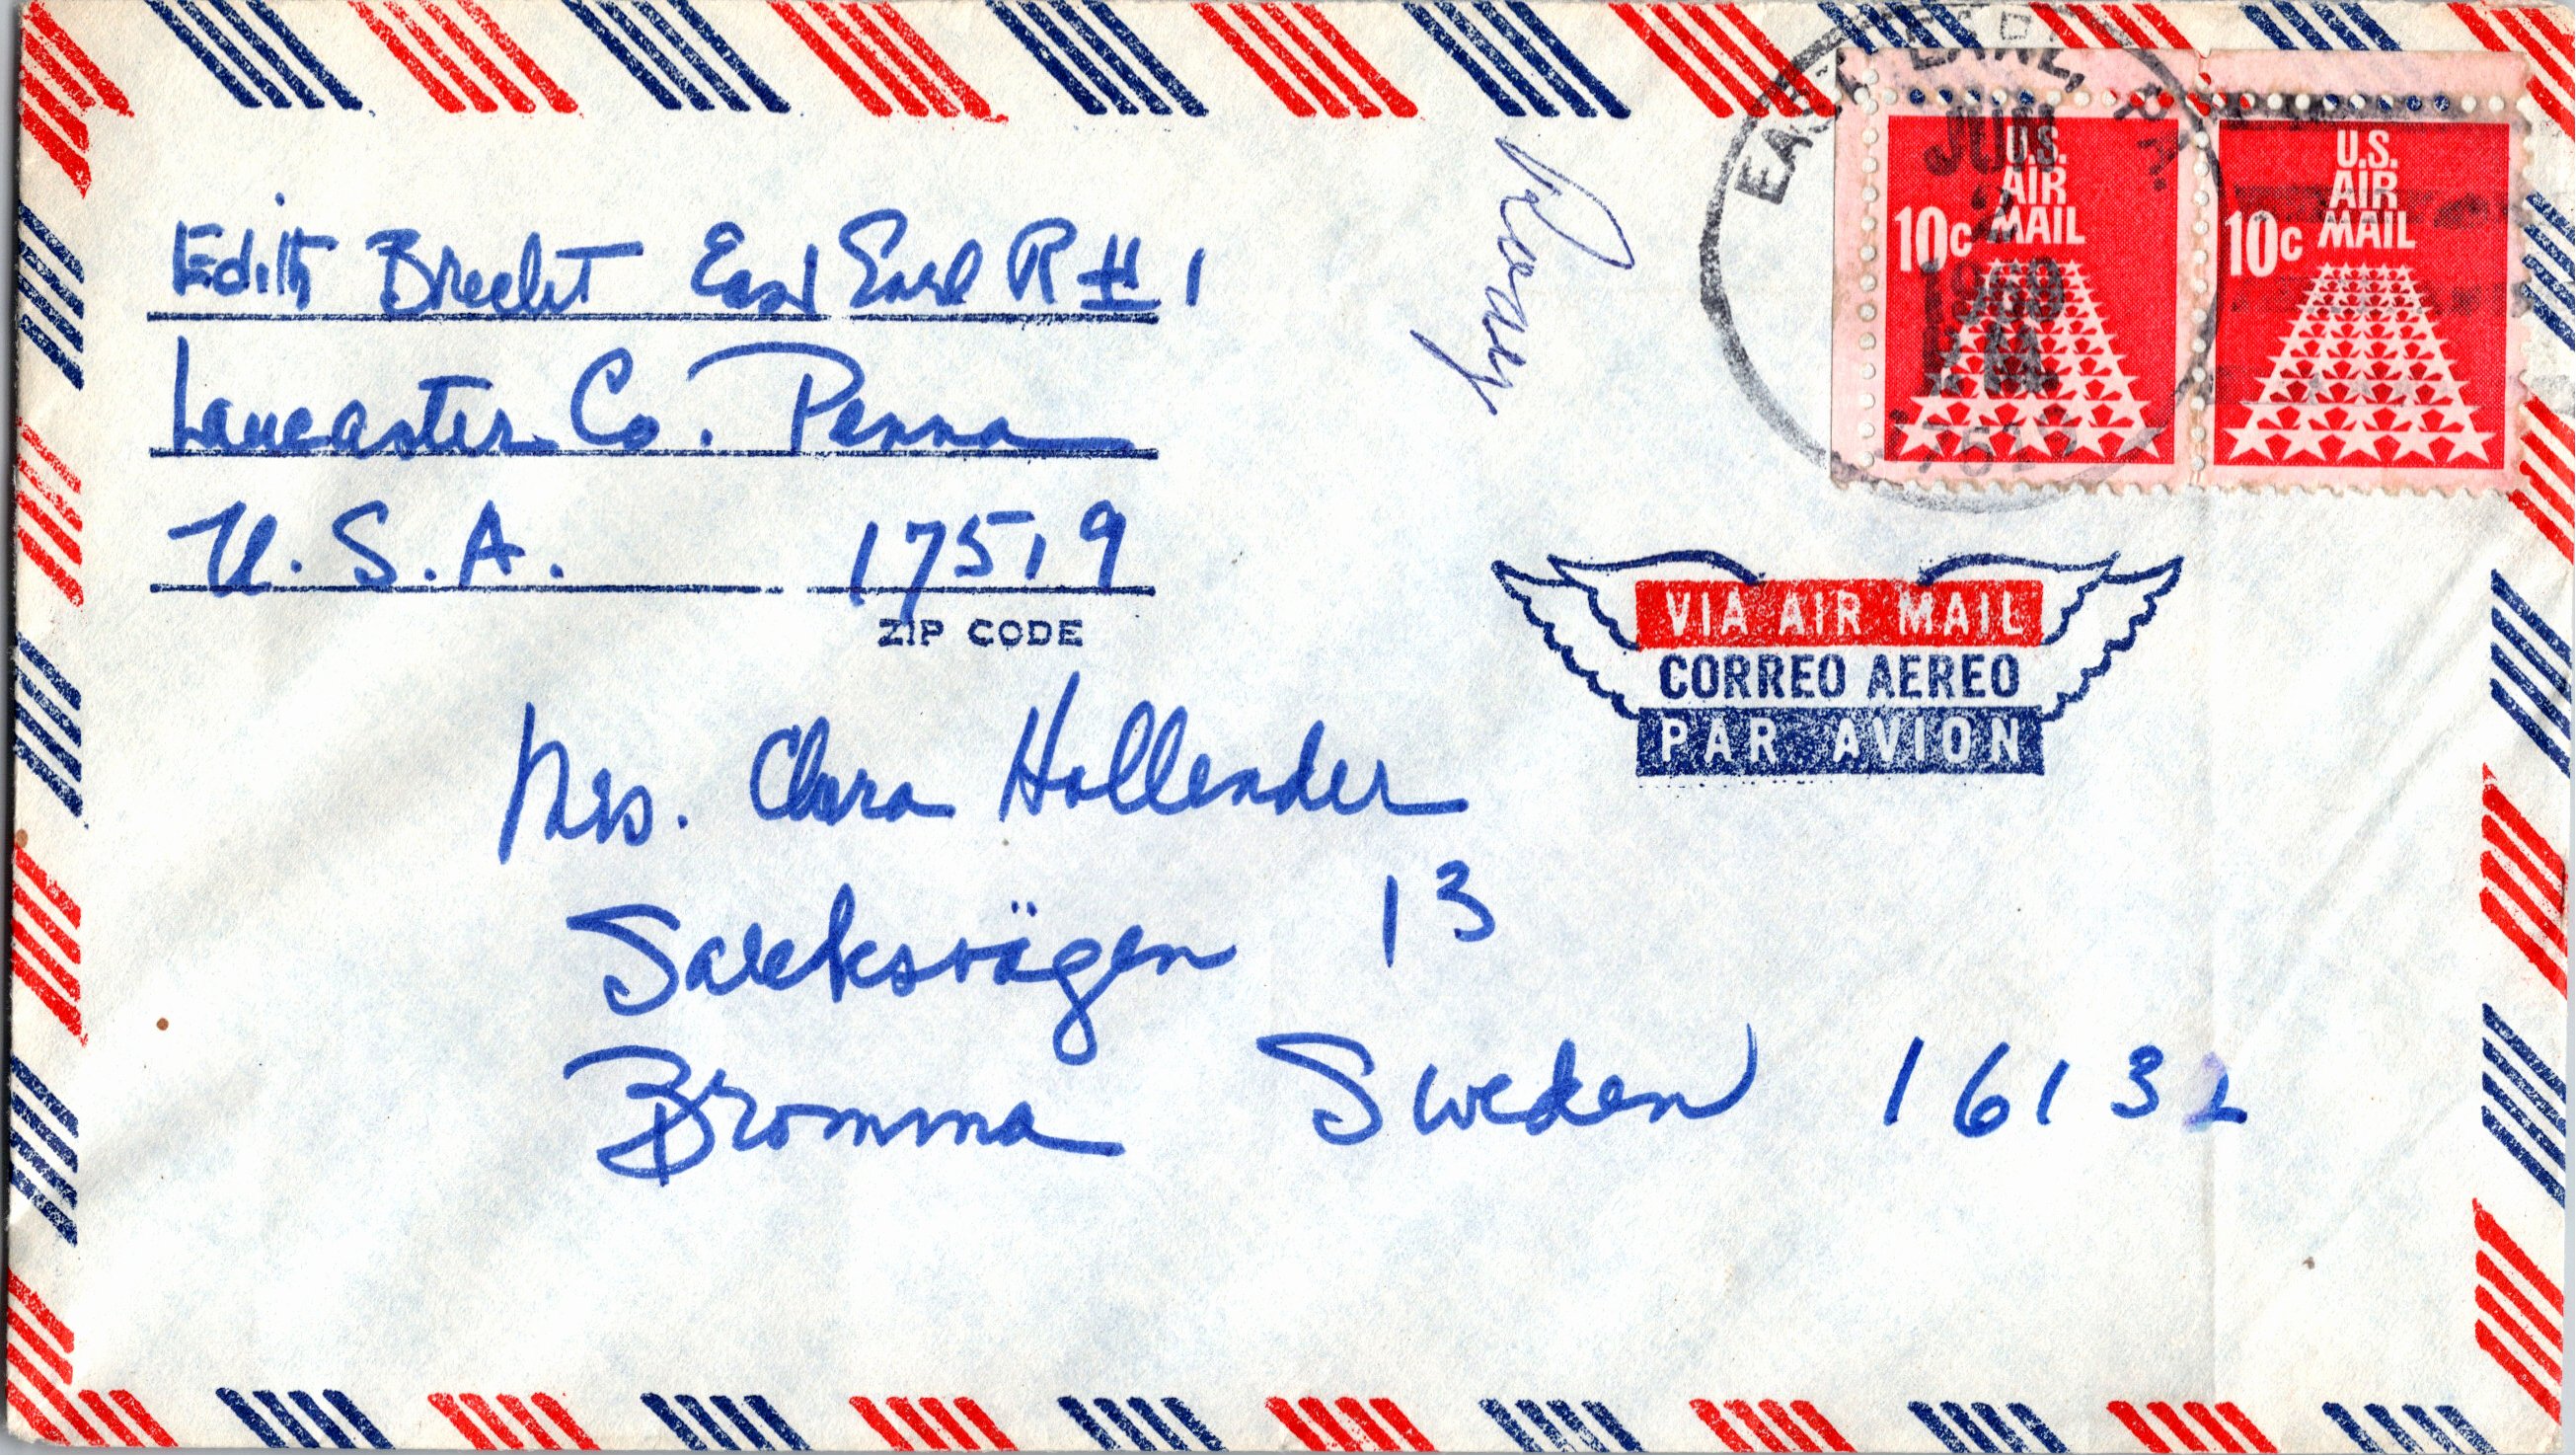 Edith Brecht East Earl R # 1
Lancaster Co. Penna
U.S.A. 17519
ZIP CODE
EAST EARL, PA.
JUN
2
1969
U.S.
AIR
MAIL
10c
U.S.
AIR
MAIL
10c
VIA AIR MAIL
CORREO AEREO
PAR AVION
Mrs. Clara Hollender
Sareksvägen 13
Bromma Sweden 16132